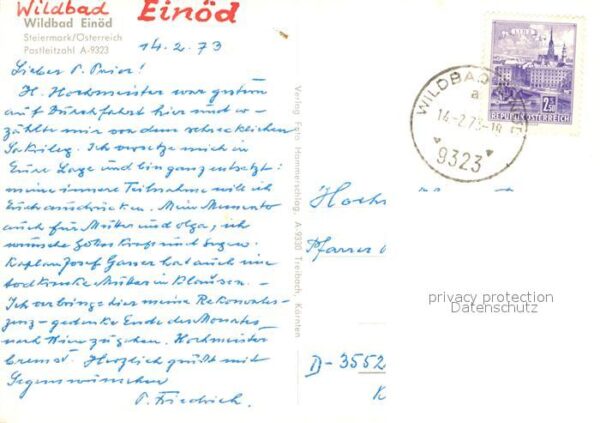 Wildbad Einöd
Wildbad Einöd
Steiermark/Österreich
Postleitzahl A-9323
14.2.73
Lieber P. Prior!
H. Hochmeister war gestern
auf Durchfahrt hier und er-
zählte mir von dem schrecklichen
Ich versetze mich in
Eure Lage und bin ganz entsetzt:
meine innere Teilnahme will ich
Euch ausdrücken. Mein Memento
auch für Mutter und Olga, ich
wünsche Gottes Kraft und Segen.
Kaplan Josef Gasser hat auch eine
todkranke Mutter in Klausen. -
Ich verbringe hier meine Rekonvales-
zenz - gedenke Ende des Monates
nach Hier zu gehen. Hochmeister
Herzlich grüßt mit
Segenswünschen
P. Friedrich.
Verlag Foto Hammerschlag, A-9330 Treibach, Kärnten
LINZ
2.50
REPUBLIK ÖSTERREICH
WILDBAD
a
14.-2.73-18
9323
Pfarrer
D-3552
privacy protection
Datenschutz